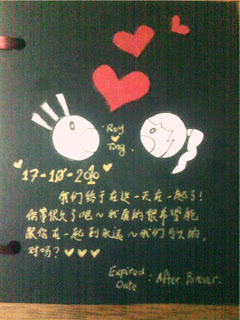 Roy
Ting
17-10-2010
我们终于在这一天在一起了!
你等很久了吧~我真的很希望能
跟你在一起到永远~我们可以的,
对吗?
Expired Date : After Forever.